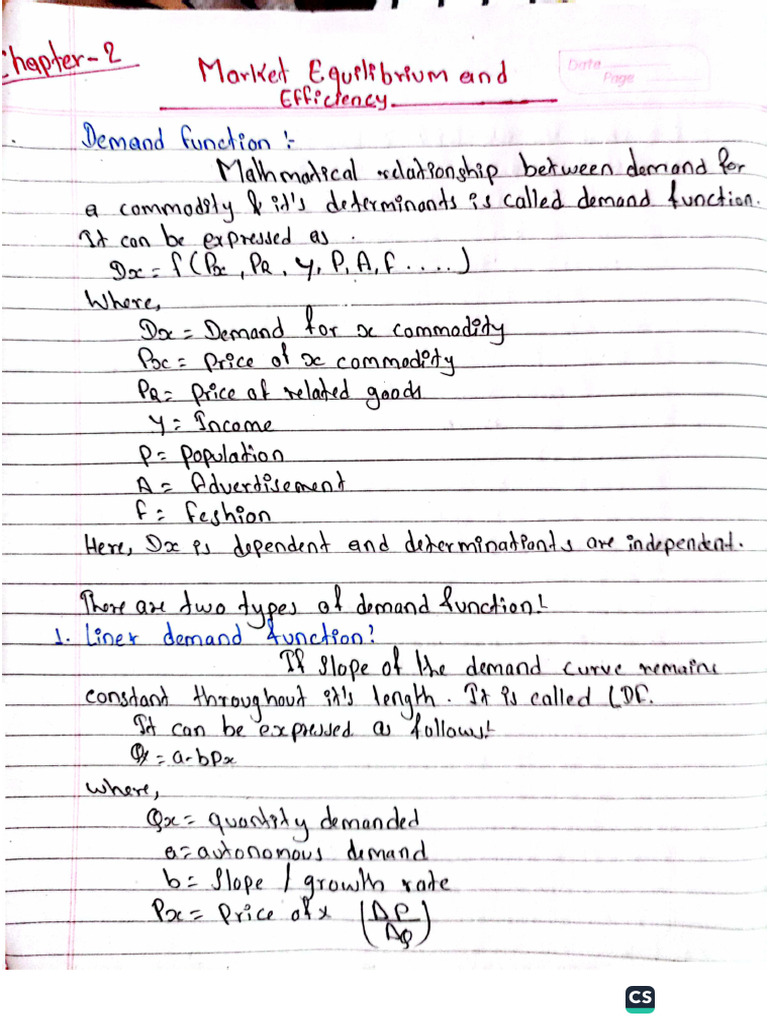 Chapter-2
Market Equilibrium and
Efficiency
Date
Page
Demand function :-
Mathmatical relationship between demand for
a commodity & it's determinants is called demand function.
It can be expressed as
Dx = f (Px, PR, y, P, A, f ....)
Where,
Dx = Demand for x commodity
Px = price of x commodity
PR = price of related goods
y = Income
P = population
A = Advertisement
f = feshion
Here, Dx is dependent and determinationts are independent.
There are two types of demand function!
1. Liner demand function!
If slope of the demand curve remains
constant throughout it's length. It is called LDF.
It can be expressed as follows!
Qx = a-bPx
where,
Qx = quantity demanded
a = autonomous demand
b = slope / growth rate
Px = price of x (ΔP/ΔQ)
CS